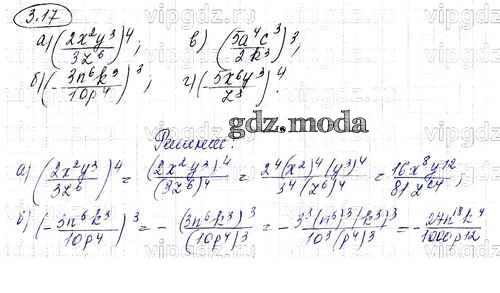 3.17
а) (2x²y³/3z⁶)⁴; в) (5a⁴c³/2k³)³;
б) (-3n⁶k³/10p⁴)³; г) (-5x⁶y³/z³)⁴.
gdz.moda
Решение:
а) (2x²y³/3z⁶)⁴ = (2x²y³)⁴/(3z⁶)⁴ = 2⁴(x²)⁴(y³)⁴/3⁴(z⁶)⁴ = 16x⁸y¹²/81z²⁴;
б) (-3n⁶k³/10p⁴)³ = -(3n⁶k³)³/(10p⁴)³ = -3³(n⁶)³(k³)³/10³(p⁴)³ = -27n¹⁸k⁹/1000p¹²